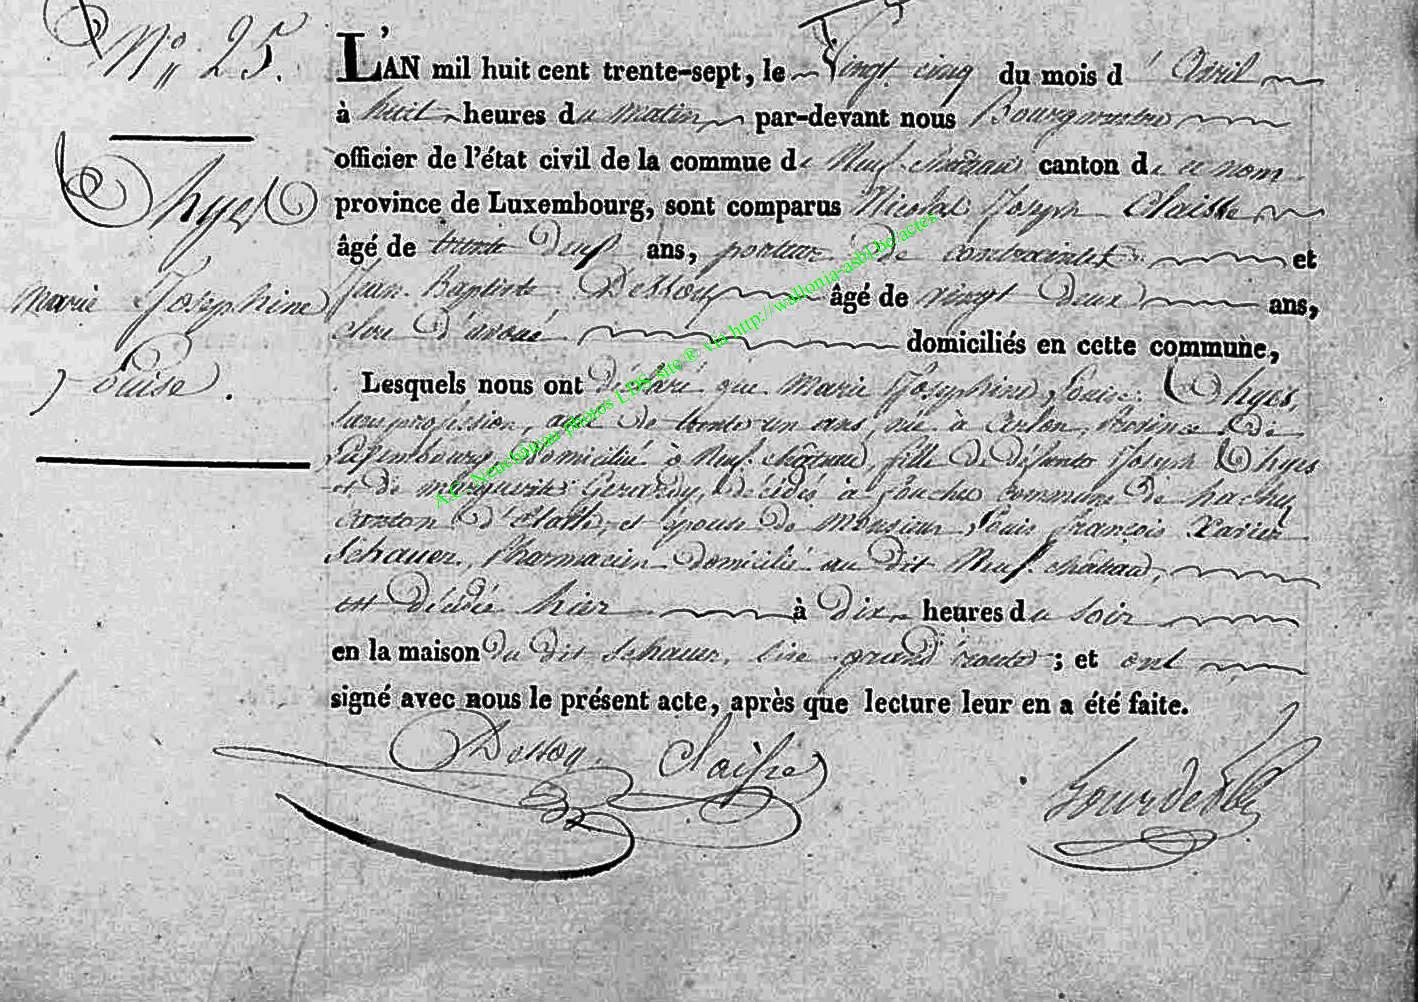 N° 25.
Thyes
Marie Josephine
Louise.
L'AN mil huit cent trente-sept, le Vingt cinq du mois d' Avril
à huit heures du matin par-devant nous Bourgmestre
officier de l'état civil de la commue de Neuf-château canton de ce nom
province de Luxembourg, sont comparus Nicolas Joseph Claisse
âgé de trente Deux ans, porteur de contraintes et
Jean Baptiste Dessoy âgé de vingt deux ans,
clerc d'avoué domiciliés en cette commune,
Lesquels nous ont déclaré que Marie Joséphine Louise Thyes
sans profession, agée de trente un ans, née à Arlon, Province de
Luxembourg, domiciliée à Neuf-château, fille de défunts Joseph Thyes
et de marguerite décédés à fouches commune de hachy
canton d'Etalle, et épouse de Monsieur Louis françois Xavier
Schauer, Pharmacien domicilié au dit Neuf-château,
est décédée hier à dix heures du soir
en la maison du dit Schauer, sise grand route ; et ont
signé avec nous le présent acte, après que lecture leur en a été faite.
Dessoy. Claisse
A.C. Neufchâteau photos LDS site ® via http://wallonia-asbl.be/actes